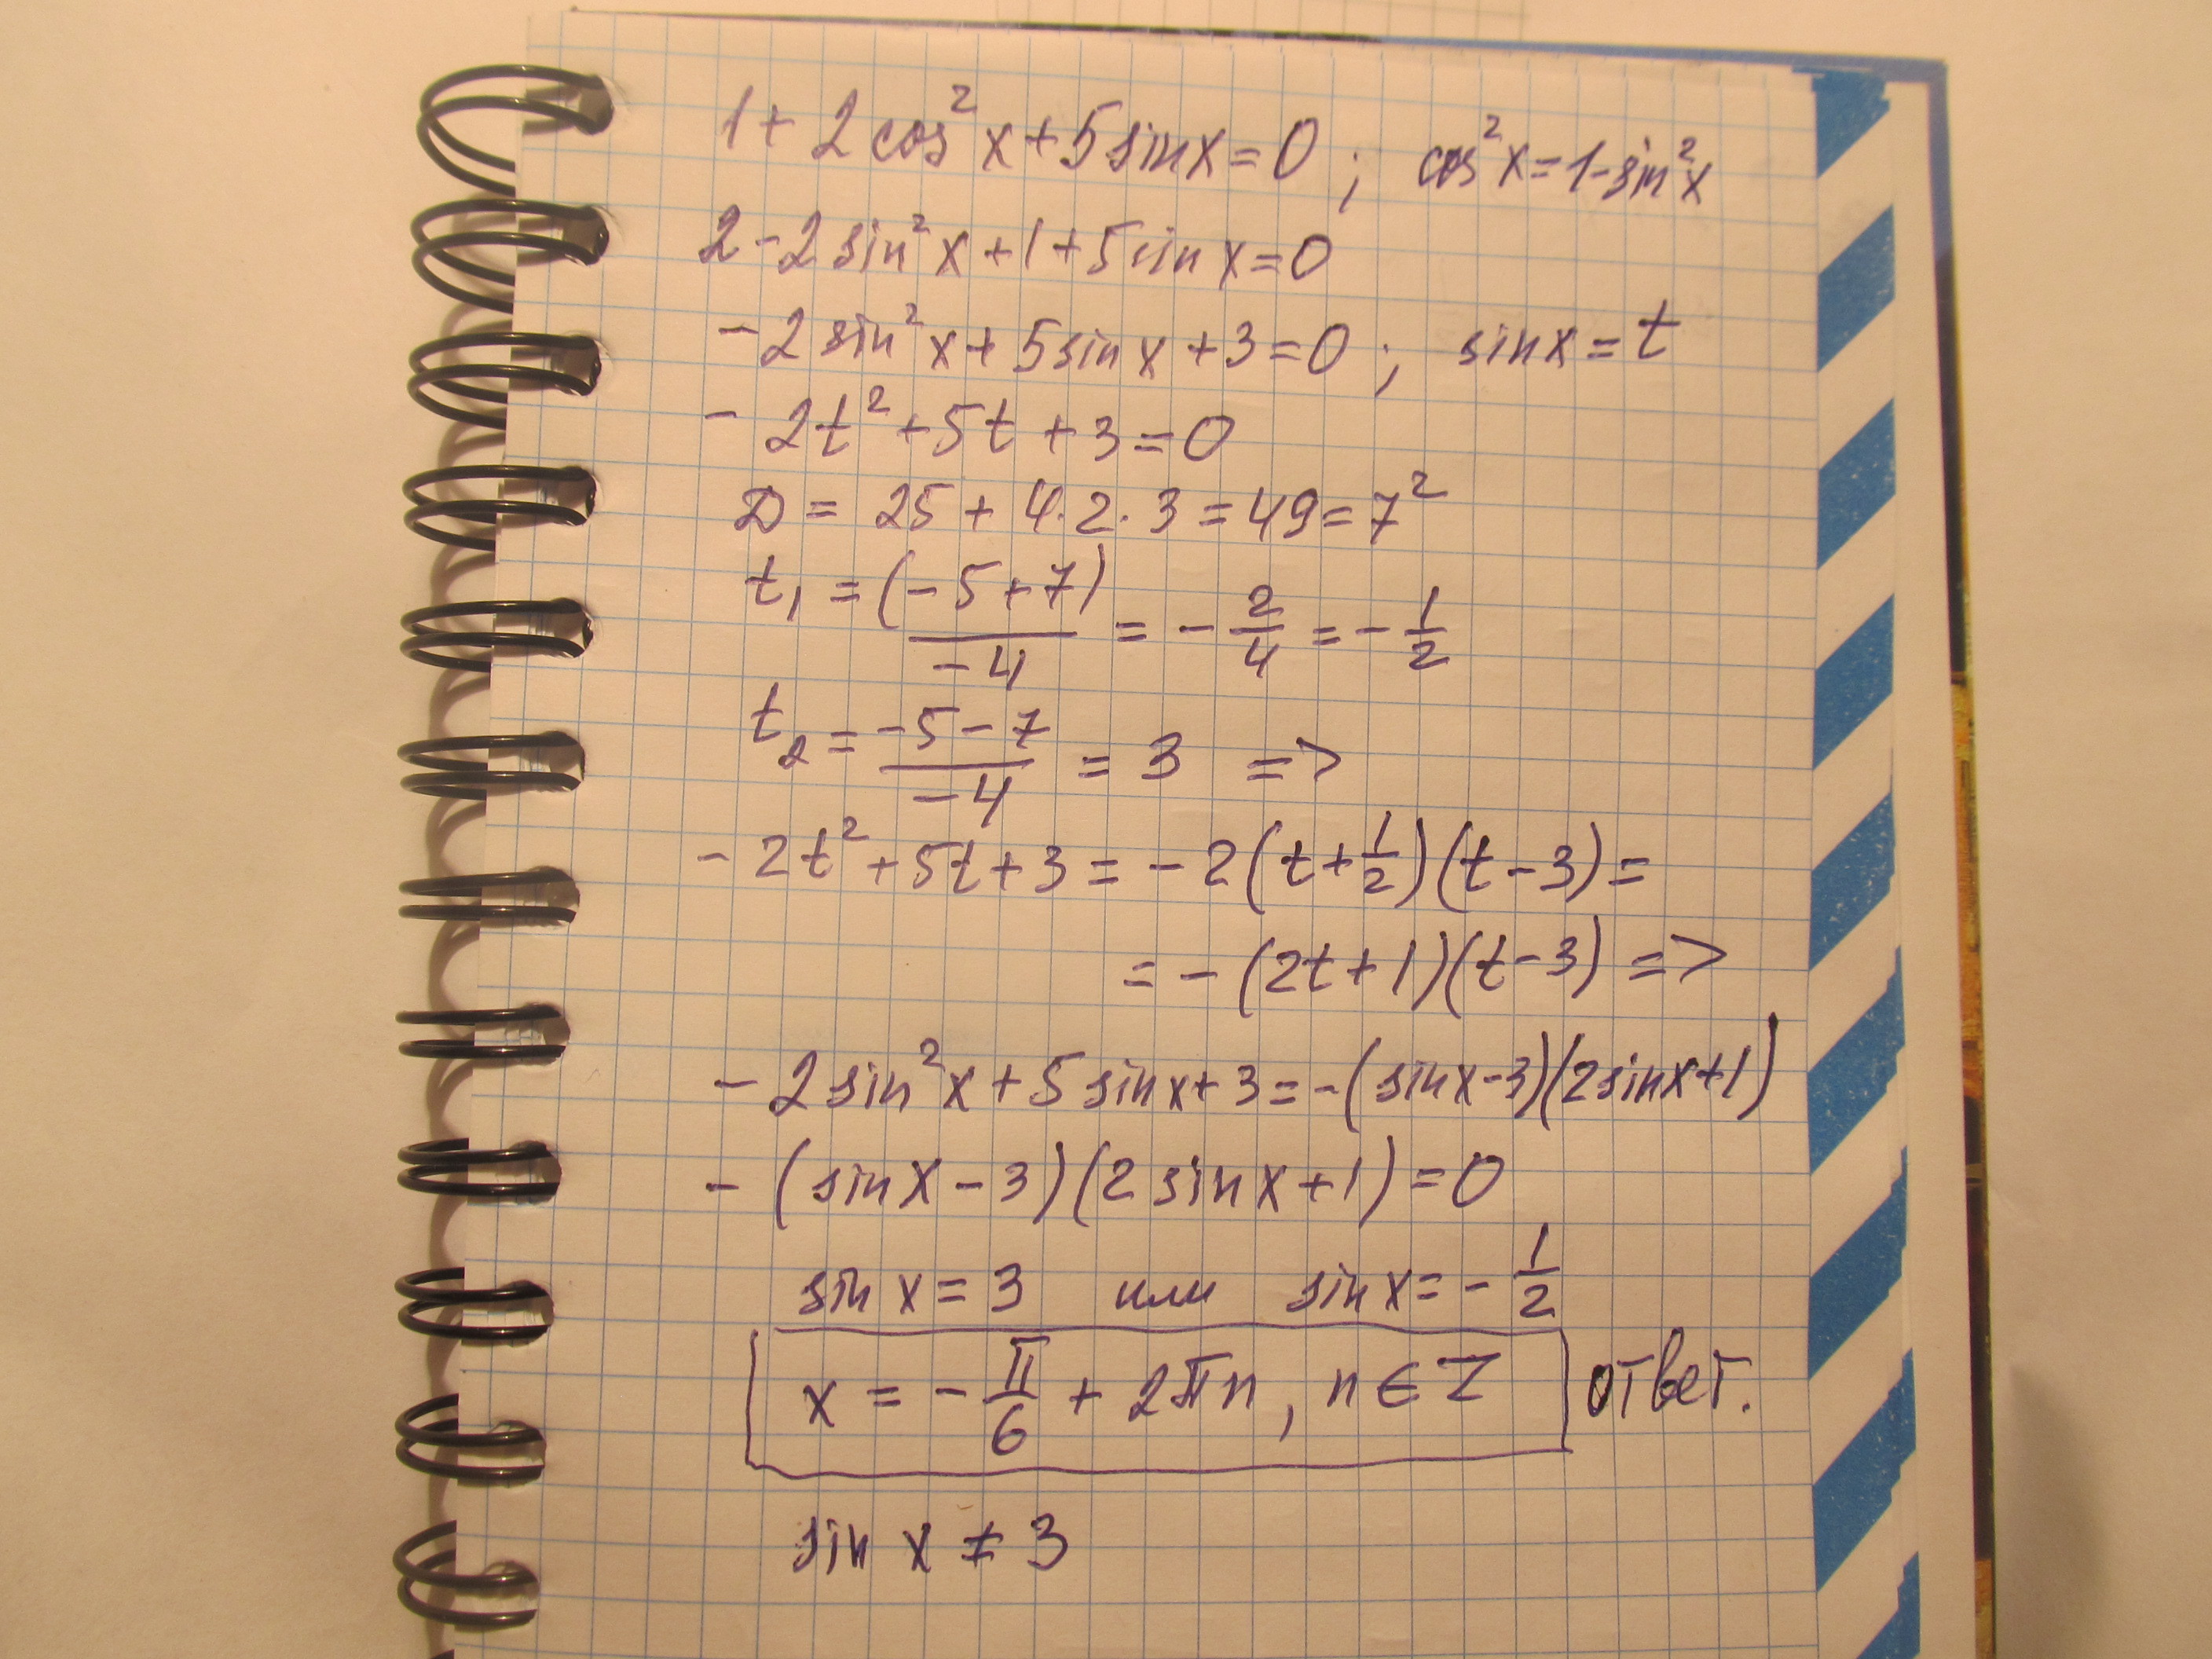 1 + 2cos²x + 5sinx = 0 ; cos²x = 1 - sin²x
2 - 2sin²x + 1 + 5sinx = 0
- 2sin²x + 5sinx + 3 = 0 ; sinx = t
- 2t² + 5t + 3 = 0
D = 25 + 4·2·3 = 49 = 7²
t₁ = (-5+7)/-4 = - 2/4 = - 1/2
t₂ = -5-7/-4 = 3 =>
- 2t² + 5t + 3 = - 2(t + 1/2)(t - 3) =
= - (2t + 1)(t - 3) =>
- 2sin²x + 5sinx + 3 = -(sinx - 3)(2sinx + 1)
- (sinx - 3)(2sinx + 1) = 0
sinx = 3 или sinx = - 1/2
x = - π/6 + 2πn, n ∈ Z ответ.
sin x ≠ 3